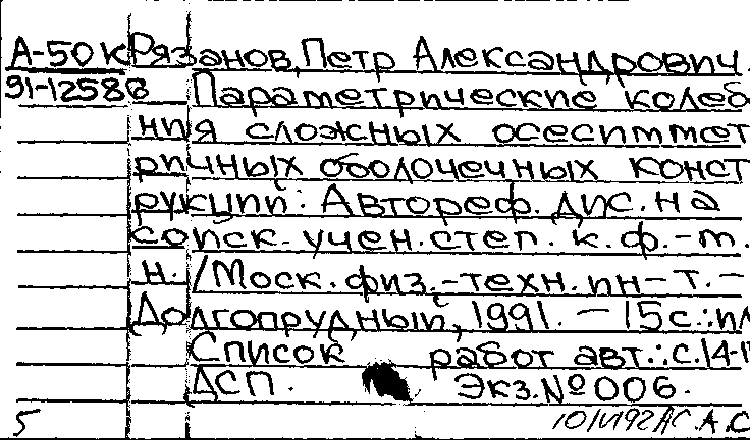 А-50к Рязанов, Петр Александрович.
91-12586 Параметрические колеб
ния сложных осесиммет
ричных оболочечных конст
рукций: Автореф. дис. на
соиск. учен. степ. к. ф.-м.
н. /Моск. физ.-техн. ин-т.-
Долгопрудный, 1991. - 15с.: ил
Список работ авт.: с.14-1
ДСП. Экз. № 006.
5